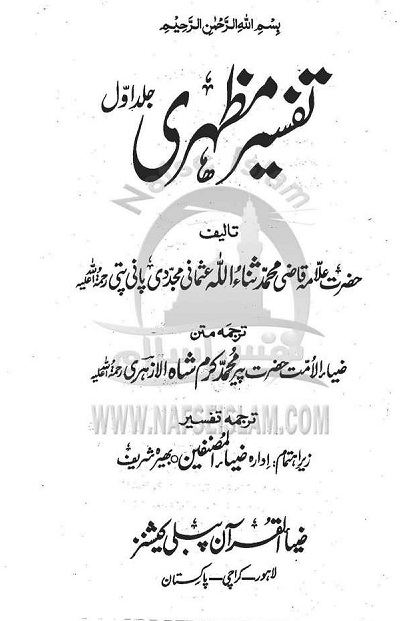 بِسْمِ اللهِ الرَّحْمٰنِ الرَّحِيْمِ
تفسیر مظہری
جلد اوّل
تالیف
حضرت علامہ قاضی محمد ثناء اللہ عثمانی مجددی پانی پتی رحمۃ اللہ علیہ
ترجمہ متن
ضیاء الامت حضرت پیر محمد کرم شاہ الازہری رحمۃ اللہ علیہ
WWW.NAFSEISLAM.COM
ترجمہ تفسیر
زیر اہتمام: ادارہ ضیاء المصنفین بھیرہ شریف
ضیاء القرآن پبلی کیشنز
لاہور - کراچی - پاکستان